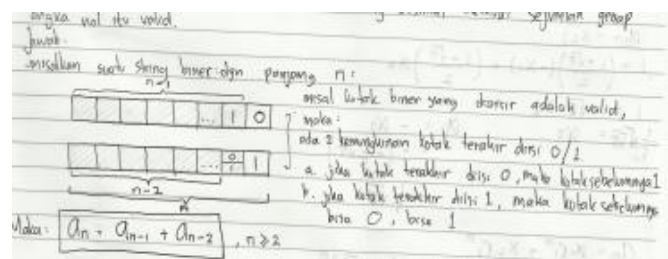 angka nol itu valid. sejumlah genap
Jawab.
misalkan suatu string biner dgn panjang n:
n-1
misal kotak biner yang diarsir adalah valid,
... 1 0
maka:
ada 2 kemungkinan kotak terakhir diisi 0/1
... 0/1 1
a. jika kotak terakhir diisi 0, maka kotak sebelumnya 1
n-2
b. jika kotak terakhir diisi 1, maka kotak sebelumnya
n
bisa 0, bisa 1
Maka: an = an-1 + an-2, n ≥ 2